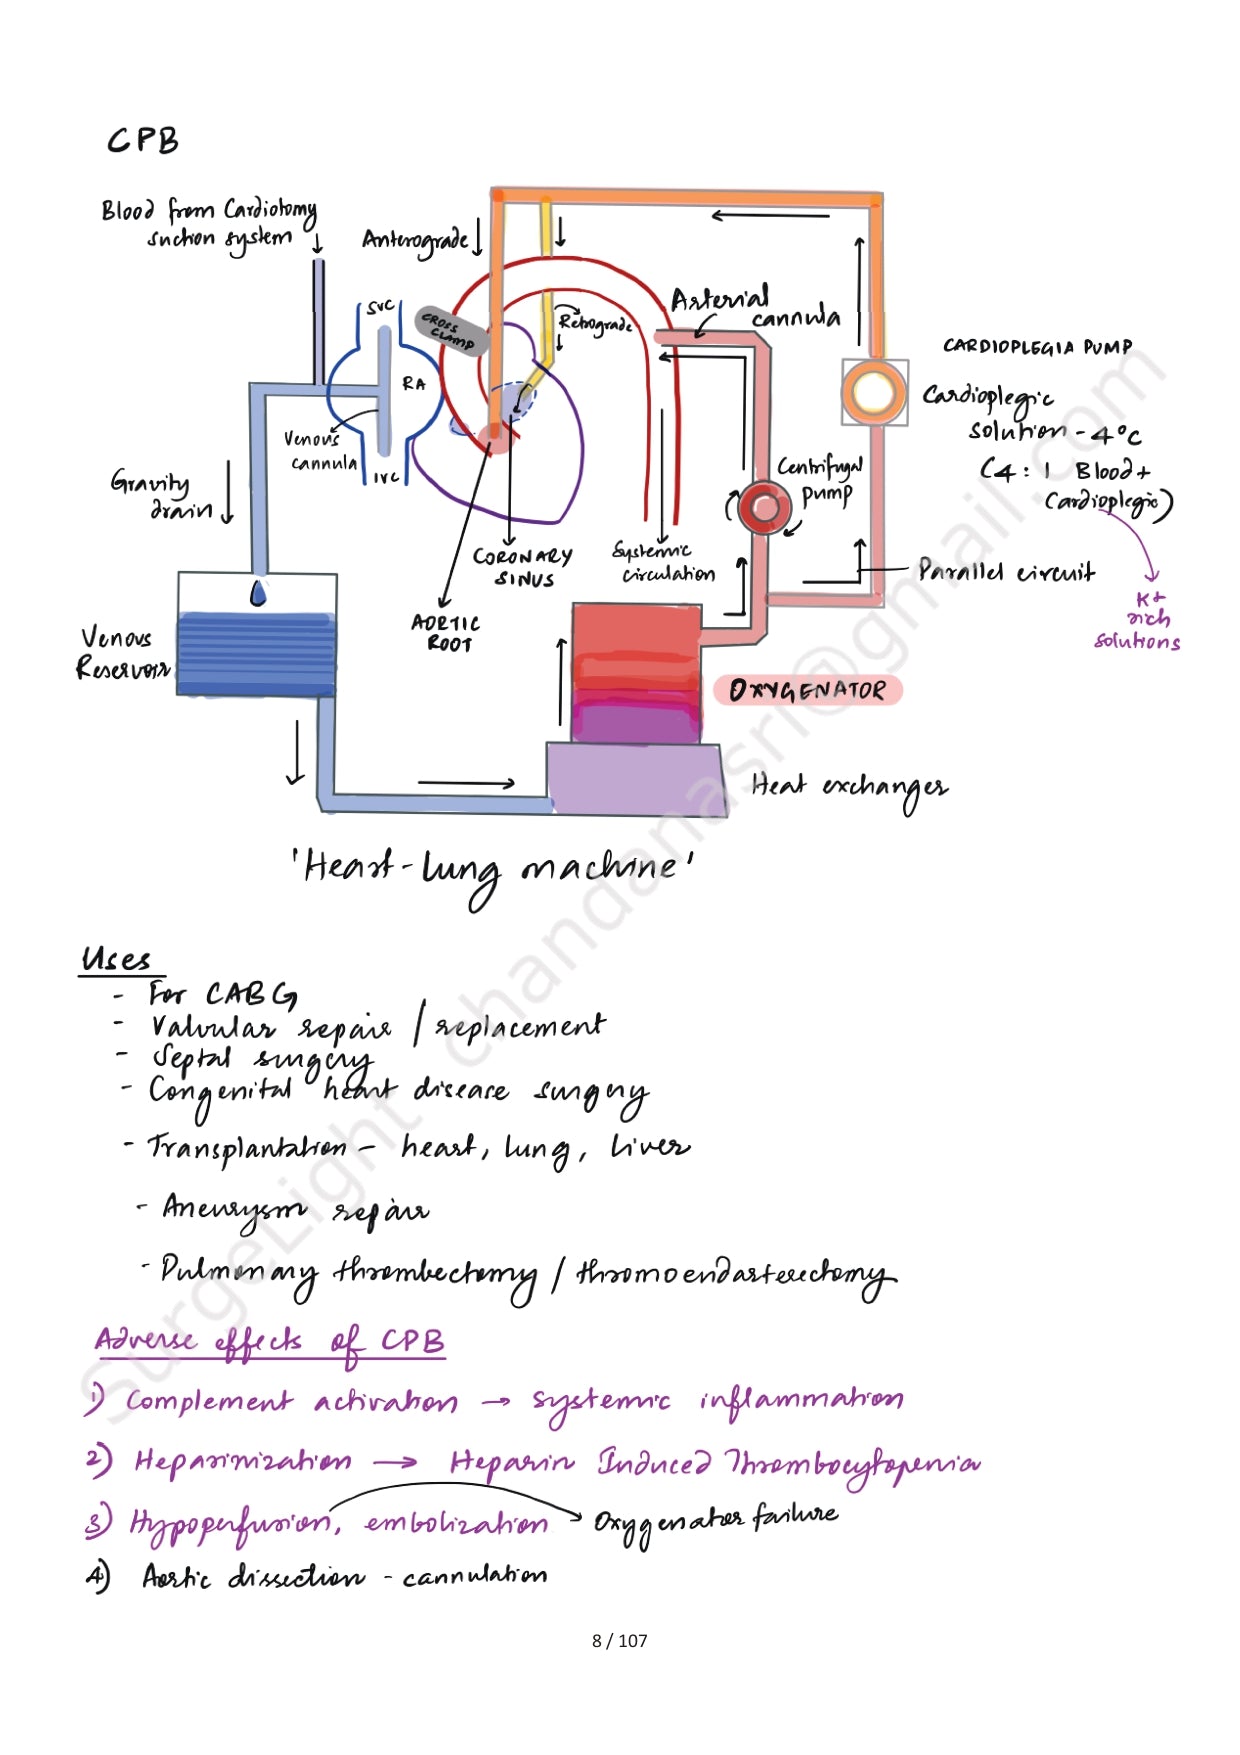 CPB
Blood from Cardiotomy
suction system
Anterograde
Arterial
cannula
SVC
CROSS
CLAMP
Retrograde
CARDIOPLEGIA PUMP
RA
Cardioplegic
solution - 4°C
(4 : 1 Blood +
Cardioplegic)
Venous
cannula
IVC
Gravity
drain
Centrifugal
pump
CORONARY
SINUS
Systemic
circulation
Parallel circuit
K+
rich
solutions
AORTIC
ROOT
Venous
Reservoir
OXYGENATOR
Heat exchanger
'Heart-lung machine'
Uses
- For CABG
- Valvular repair / replacement
- Septal surgery
- Congenital heart disease surgery
- Transplantation - heart, lung, liver
- Aneurysm repair
- Pulmonary thrombectomy / thromoendarterectomy
Adverse effects of CPB
1) Complement activation → systemic inflammation
2) Heparinization → Heparin Induced Thrombocytopenia
3) Hypoperfusion, embolization → Oxygenator failure
4) Aortic dissection - cannulation
SurgeLight chandanasri@gmail.com
8 / 107